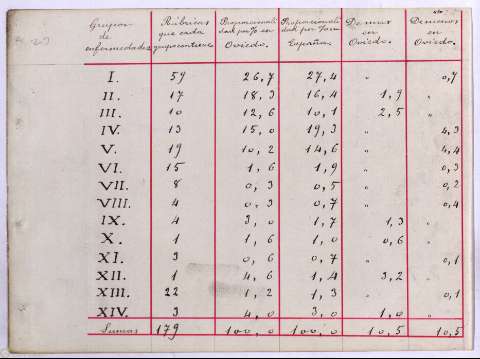 Grupos de enfermedades | Rúbricas que cada grupo contiene | Proporcionalidad por % en Oviedo. | Proporcionalidad por % en España. | De mas en Oviedo. | De menos en Oviedo.
I. | 59 | 26,7 | 27,4 | " | 0,7
II. | 17 | 18,3 | 16,4 | 1,9 | "
III. | 10 | 12,6 | 10,1 | 2,5 | "
IV. | 13 | 15,0 | 19,3 | " | 4,3
V. | 19 | 10,2 | 14,6 | " | 4,4
VI. | 15 | 1,6 | 1,9 | " | 0,3
VII. | 8 | 0,3 | 0,5 | " | 0,2
VIII. | 4 | 0,3 | 0,7 | " | 0,4
IX. | 4 | 3,0 | 1,7 | 1,3 | "
X. | 1 | 1,6 | 1,0 | 0,6 | "
XI. | 3 | 0,6 | 0,7 | " | 0,1
XII. | 1 | 4,6 | 1,4 | 3,2 | "
XIII. | 22 | 1,2 | 1,3 | " | 0,1
XIV. | 3 | 4,0 | 3,0 | 1,0 | "
Sumas | 179 | 100,0 | 100,0 | 10,5 | 10,5